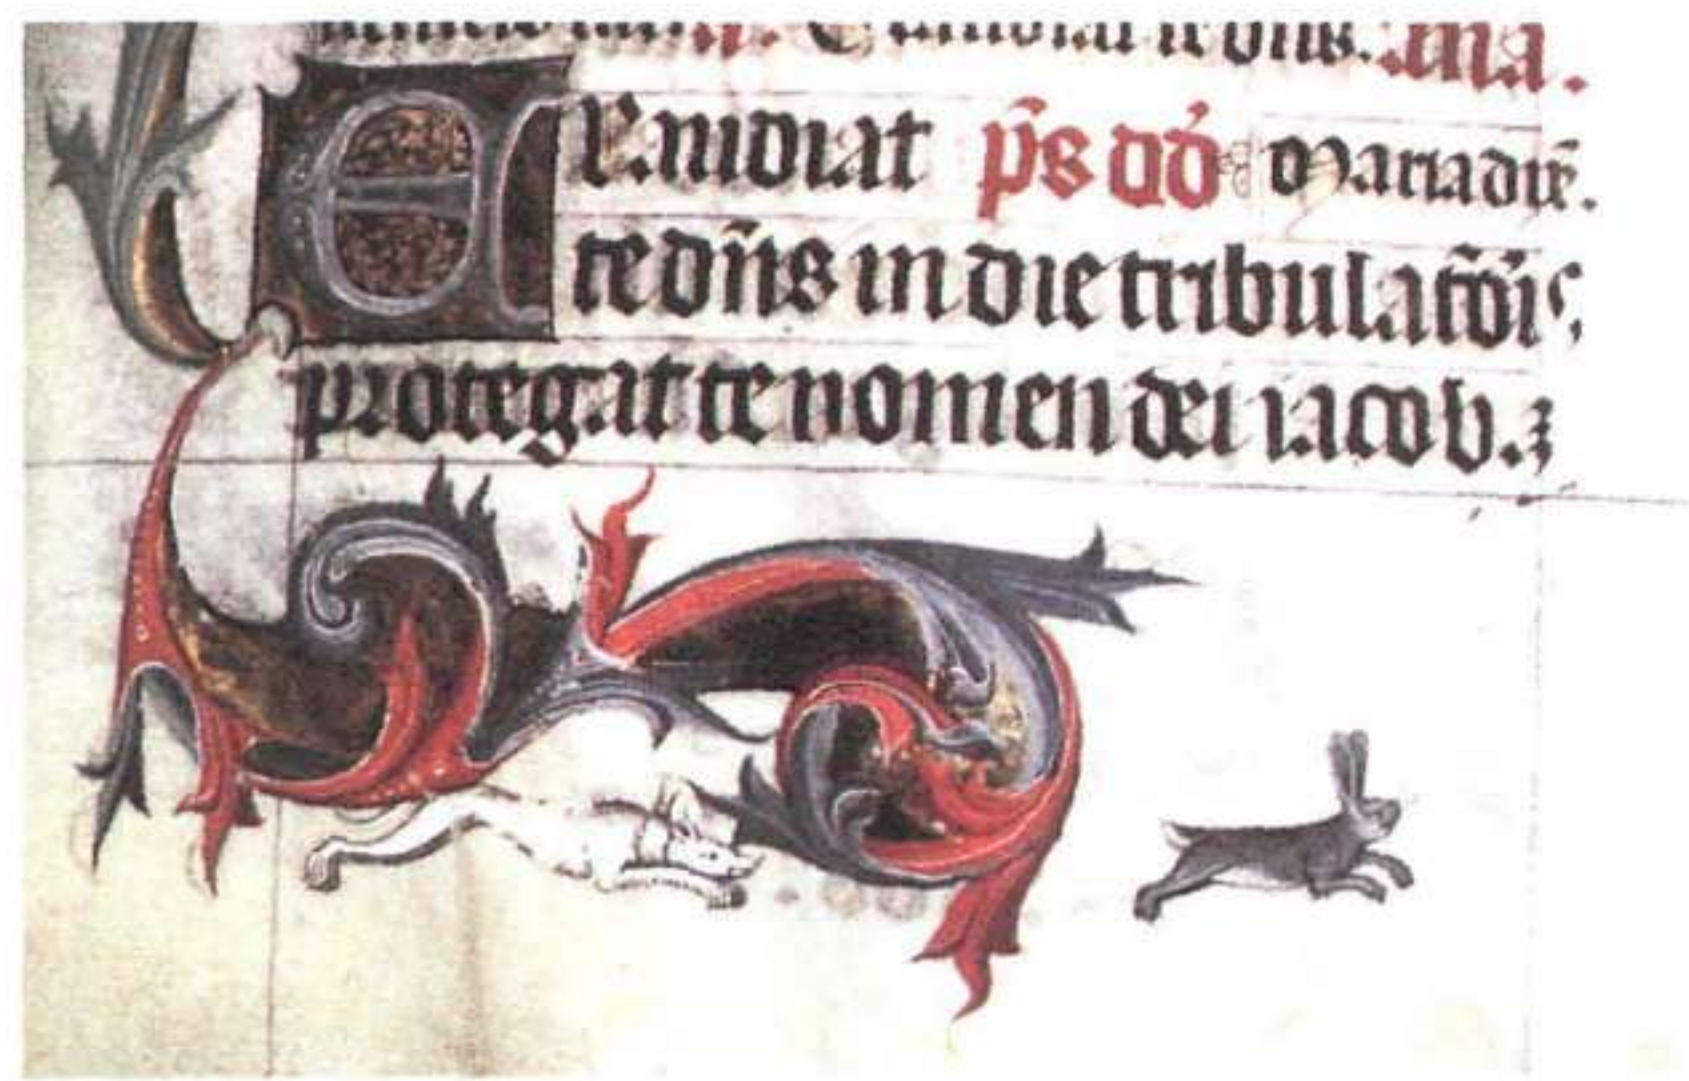 te dn̄s.
EXaudiat p̄s dd̄ Maria
te dn̄s in die tribulatōis,
protegat te nomen dei iacob.